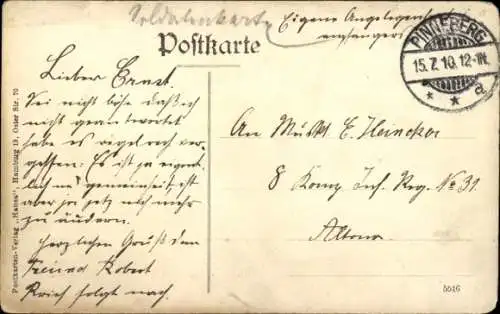 Soldatenkarte
Eigene Angelegenheit
Postkarte
PINNEBERG
15.7.10.12-1N.
* * a
Lieber Ernst.
Sei nicht böse daß ich
nicht geantwortet
habe es vergessen:
Es ist ja eigent-
lich ne gemeinheit, ist
aber ja jetz nich mehr
zu ändern.
Herzlichen Gruß dein
Freund Robert
Brief folgt nach.
An Muskt E. Heincker
8 Komp. Inf. Reg. No 31.
Altona
Postkarten-Verlag „Hansa“, Hamburg 19, Oster Str. 70
5516